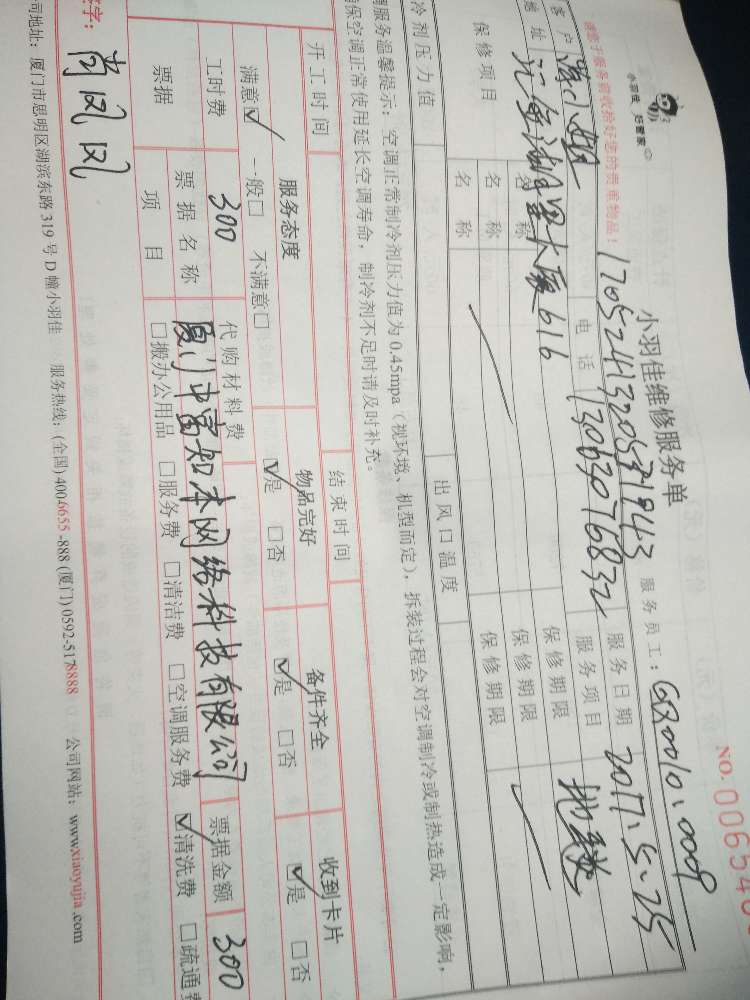 小羽佳 好管家
小羽佳维修服务单
NO.
请您于服务前收拾好您的贵重物品!
17052413205471943
服务员工: GX0010.0009
客户
小姐
电话 13063076832
服务日期 2017.5.25
地址
湖里大厦616
服务项目 地毯
保修项目
名称
保修期限
名称
保修期限
名称
保修期限
冷剂压力值
出风口温度
调服务温馨提示: 空调正常制冷剂压力值为0.45mpa (视环境、机型而定), 拆装过程会对空调制冷或制热造成一定影响,
保空调正常使用延长空调寿命, 制冷剂不足时请及时补充。
开工时间
结束时间
服务态度
物品完好
备件齐全
收到卡片
满意☑ 一般□ 不满意□
☑是 □否
☑是 □否
☑是 □否
工时费 300
代购材料费
票据
票据名称
厦门中富知本网络科技有限公司
票据金额 300
项目
□搬办公用品 □服务费 □清洁费 □空调服务费 ☑清洗费 □疏通费
字: 尚风风
司地址: 厦门市思明区湖滨东路319号D幢小羽佳 服务热线: (全国)4006655-888 (厦门)0592-5178888 公司网站: www.xiaoyujia.com